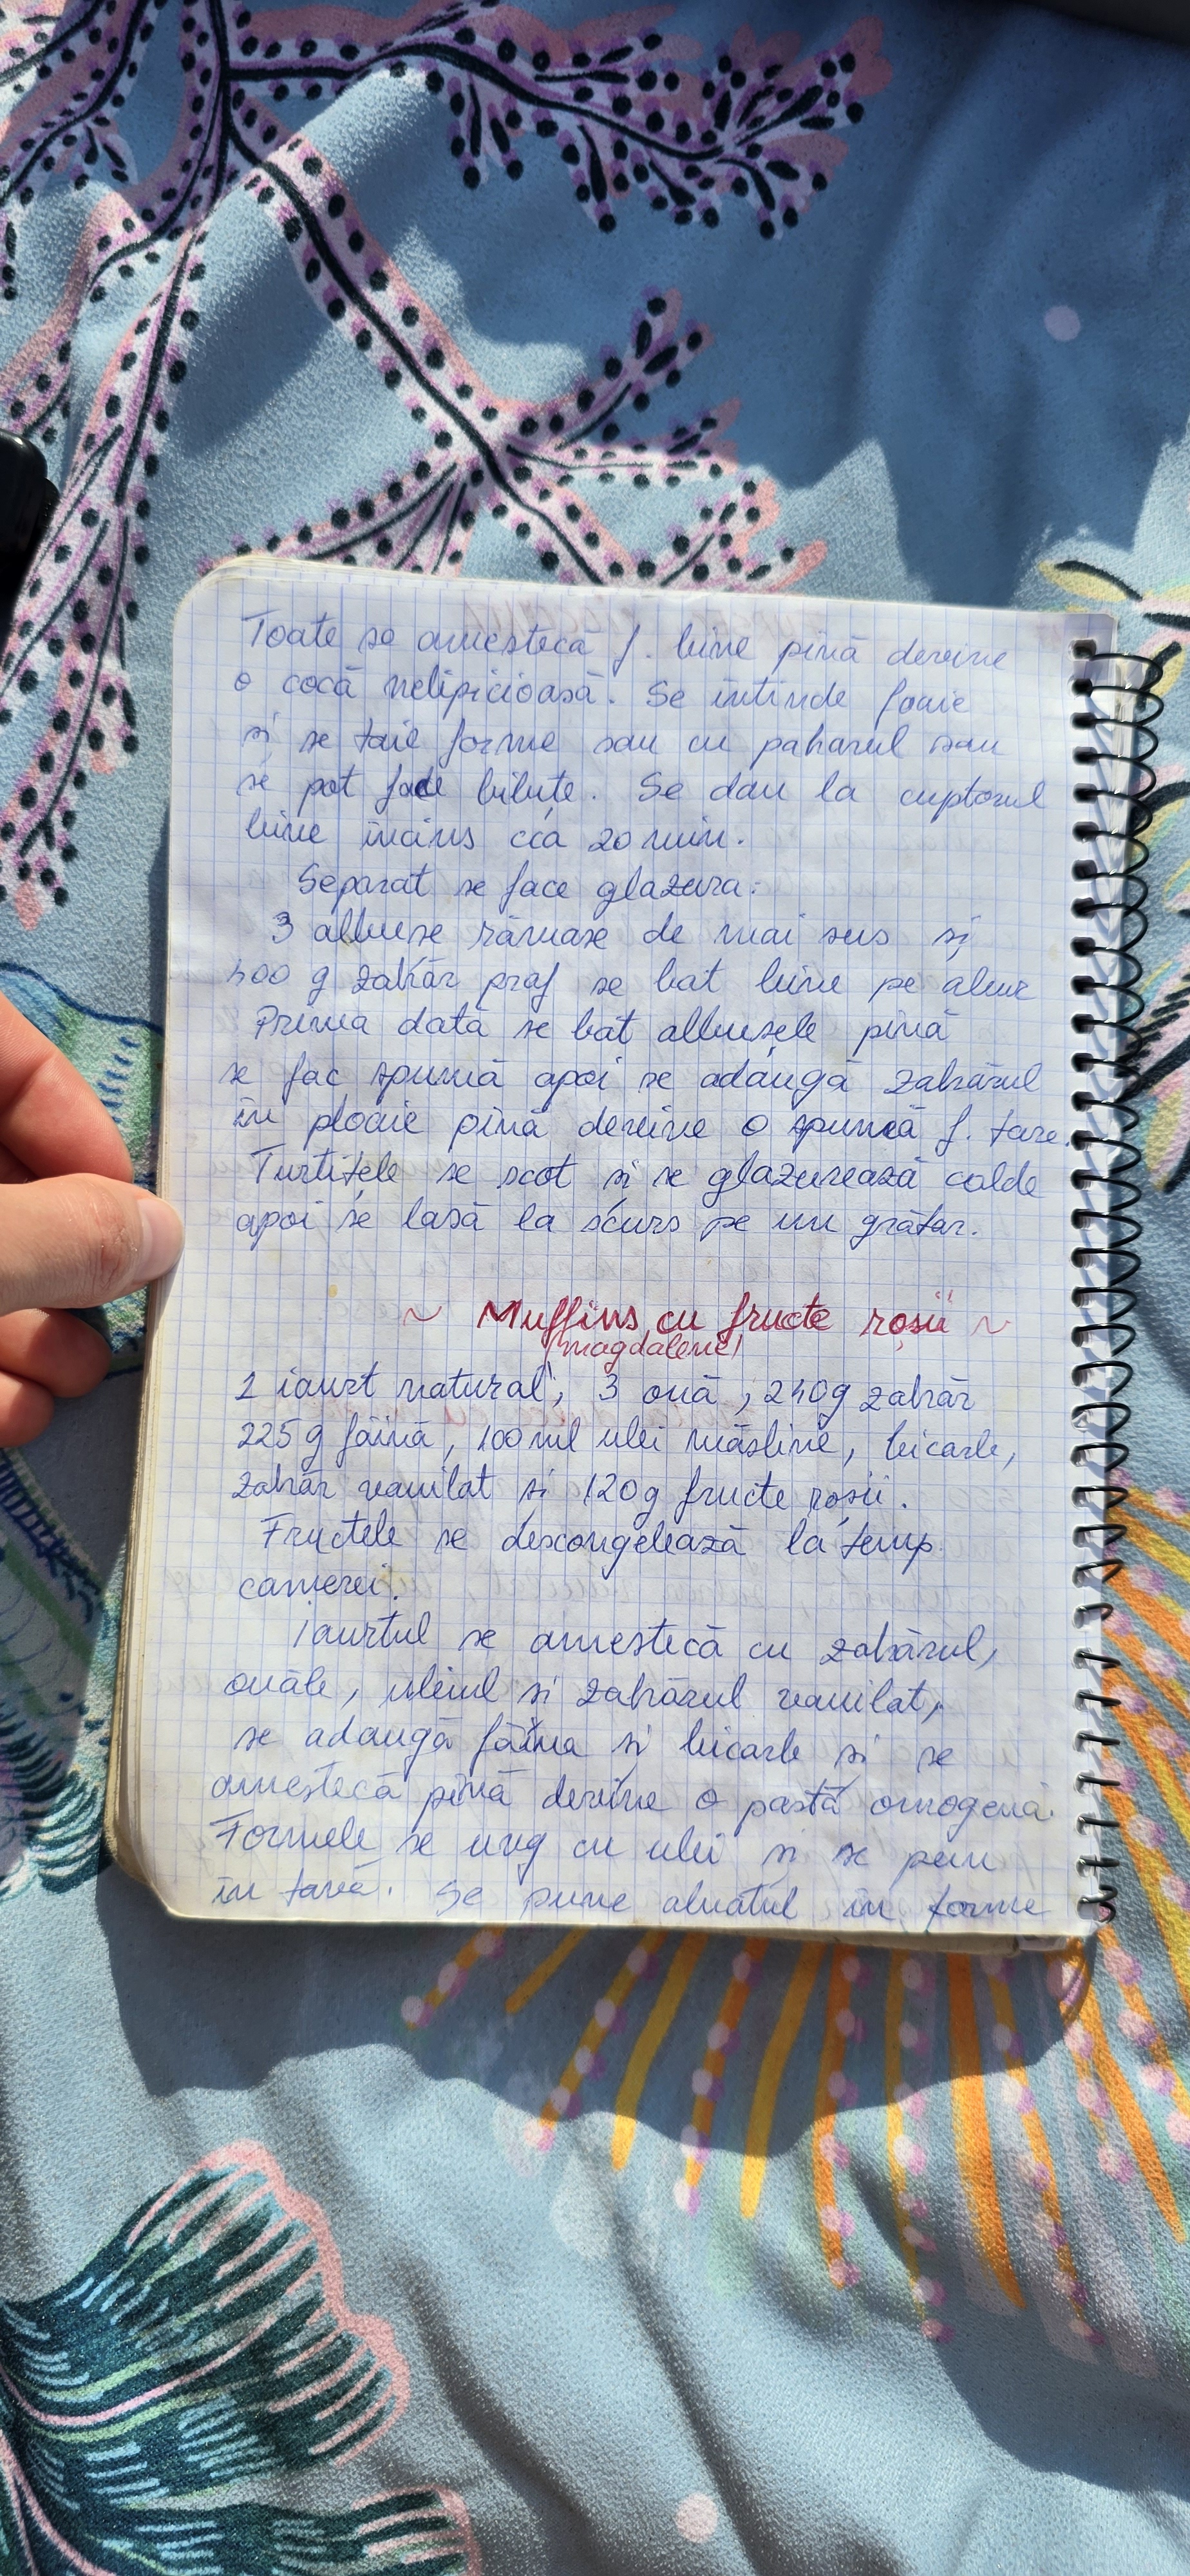 Toate se amestecă f. bine pină devine
o cocă nelipicioasă. Se intinde foaie
si se taie forme sau cu paharul sau
se pot face bilute. Se dau la cuptorul
bine incins cca 20 min.
Separat se face glazura:
3 albuse rămase de mai sus și
400 g zahăr praf se bat bine pe abur
Prima dată se bat albusele pină
se fac spumă apoi se adaugă zahărul
in ploaie pină devine o spumă f. tare.
Turtițele se scot si se glazurează calde
apoi se lasă la scurs pe un grătar.
~ Muffins cu fructe roșii ~
(magdalene)
1 iaurt natural, 3 ouă, 240g zahăr
225 g făină, 100 ml ulei măsline, bicarb,
zahăr vanilat si 120g fructe roșii.
Fructele se descongelează la temp.
camerei.
Iaurtul se amestecă cu zahărul,
ouăle, uleiul si zahărul vanilat,
se adaugă făina si bicarb si se
amestecă pină devine o pastă omogenă.
Formele se ung cu ulei si se pun
in tavă. Se pune aluatul in forme